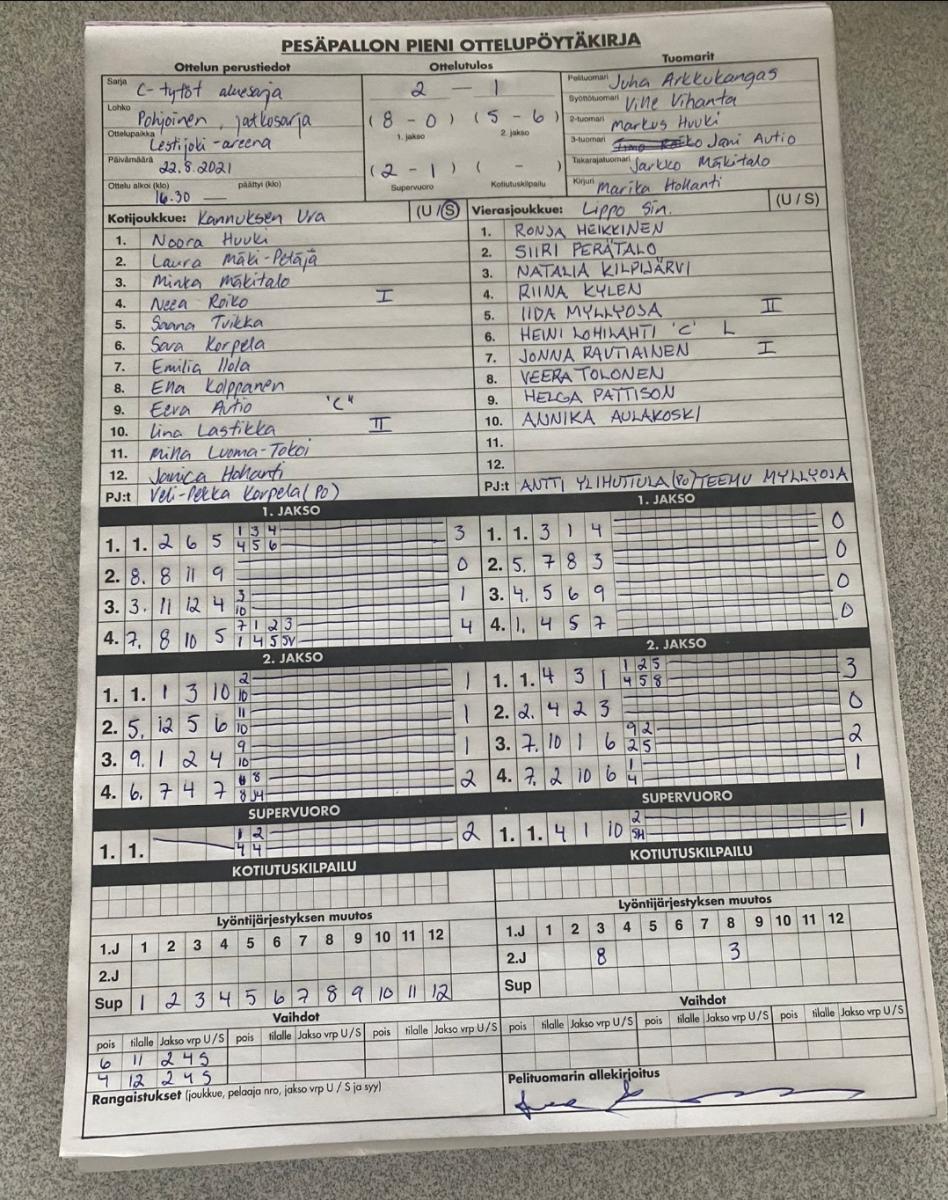 PESÄPALLON PIENI OTTELUPÖYTÄKIRJA
Ottelun perustiedot
Sarja C-tytöt aluesarja
Lohko Pohjoinen, jatkosarja
Ottelupaikka Lestijoki-areena
Päivämäärä 22.8.2021
Ottelu alkoi (klo) 16.30 päättyi (klo) —
Ottelutulos
2 — 1
(8 - 0) (5 - 6)
1. jakso 2. jakso
(2 - 1) ( - )
Supervuoro Kotiutuskilpailu
Tuomarit
Pelituomari Juha Arkkukangas
Syöttötuomari Ville Vihanta
2-tuomari Markus Huuki
3-tuomari Jani Autio
Takarajatuomari Jarkko Mäkitalo
Kirjuri Marika Hollanti
Kotijoukkue: Kannuksen Ura (U / S)
1. Noora Huuki
2. Laura Mäki-Petäjä
3. Minka Mäkitalo
4. Neea Roiko I
5. Saana Tvikka
6. Sara Korpela
7. Emilia Ilola
8. Ella Kolppanen
9. Eeva Autio "C"
10. Iina Lastikka II
11. Milla Luoma-Tokoi
12. Janica Hollanti
PJ:t Veli-Pekka Korpela (PO)
Vierasjoukkue: Lippo Sin. (U / S)
1. RONJA HEIKKINEN
2. SIIRI PERÄTALO
3. NATALIA KILPIJÄRVI
4. RIINA KYLEN
5. IIDA MYLLYOJA II
6. HEINI LOHILAHTI 'C' L
7. JONNA RAUTIAINEN I
8. VEERA TOLONEN
9. HELGA PATTISON
10. ANNIKA AULAKOSKI
11.
12.
PJ:t ANTTI YLIHUTTULA (PO) TEEMU MYLLYOJA
1. JAKSO
1. 1. 2 6 5 1 3 4 3
4 5 6
2. 8. 8 11 9 0
3. 3. 11 12 4 3 1
10
4. 7. 8 10 5 7 1 2 3 4
1 4 5 5V
2. JAKSO
1. 1. 1 3 10 2 1
10
2. 5. 12 5 6 11 1
10
3. 9. 1 2 4 9 1
10
4. 6. 7 4 7 8 2
8 J4
SUPERVUORO
1. 1. 1 2 2
4 4
KOTIUTUSKILPAILU
Lyöntijärjestyksen muutos
1.J 1 2 3 4 5 6 7 8 9 10 11 12
2.J
Sup 1 2 3 4 5 6 7 8 9 10 11 12
Vaihdot
pois tilalle Jakso vrp U / S pois tilalle Jakso vrp U / S pois tilalle Jakso vrp U / S
6 11 2 4 S
4 12 2 4 S
Rangaistukset (joukkue, pelaaja nro, jakso vrp U / S ja syy)
1. JAKSO
1. 1. 3 1 4 0
2. 5. 7 8 3 0
3. 4. 5 6 9 0
4. 1. 4 5 7 0
2. JAKSO
1. 1. 4 3 1 1 2 5 3
4 5 8
2. 2. 4 2 3 0
3. 7. 10 1 6 9 2 2
2 5
4. 7. 2 10 6 1 1
4
SUPERVUORO
1. 1. 4 1 10 2 1
5H
KOTIUTUSKILPAILU
Lyöntijärjestyksen muutos
1.J 1 2 3 4 5 6 7 8 9 10 11 12
2.J 8 3
Sup
Vaihdot
pois tilalle Jakso vrp U / S pois tilalle Jakso vrp U / S pois tilalle Jakso vrp U / S
Pelituomarin allekirjoitus